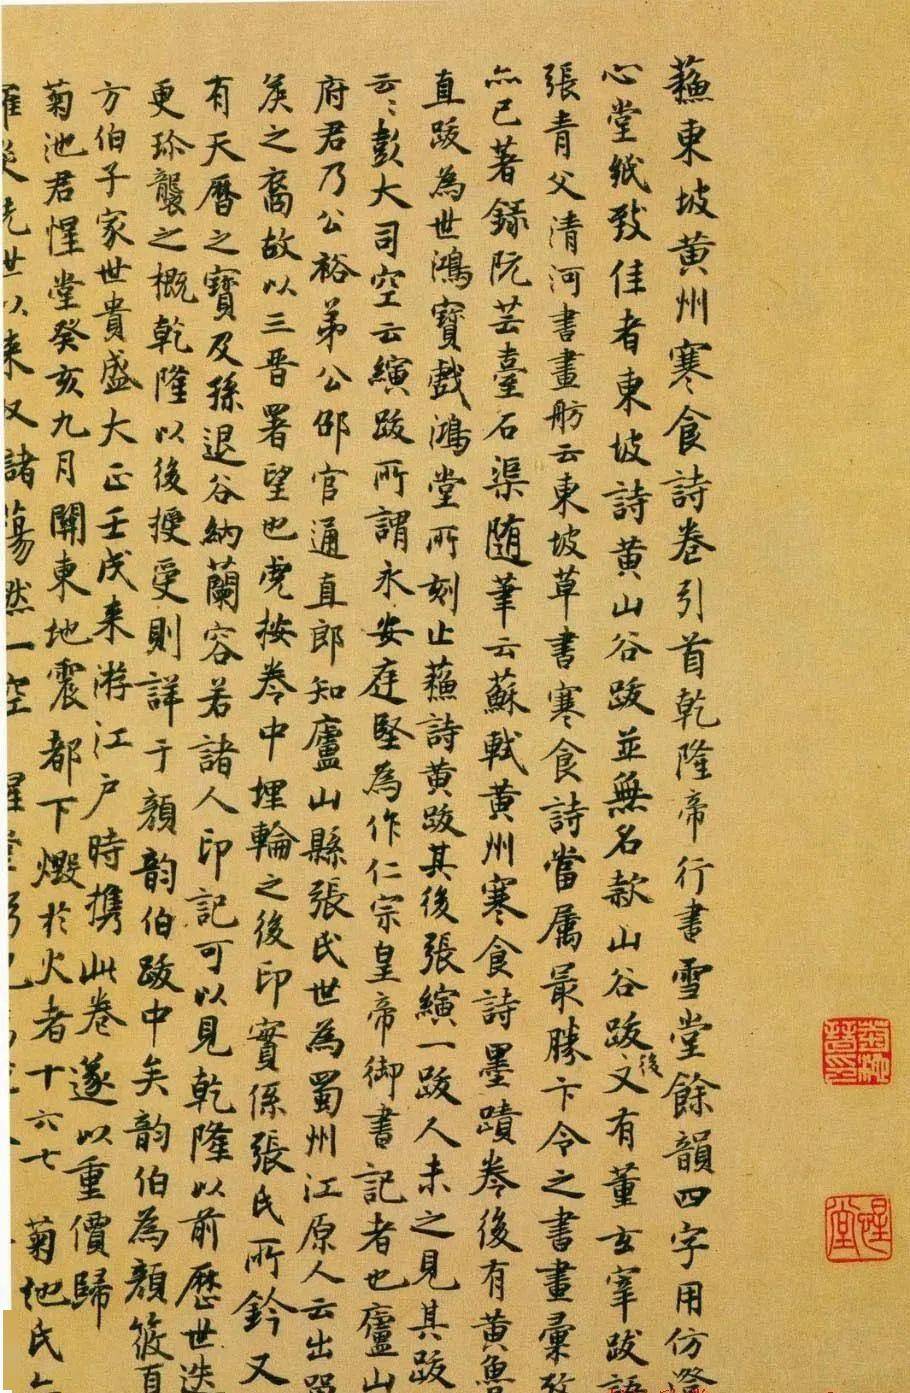 蘓東坡黄州寒食詩卷引首乾隆帝行書雪堂餘韻四字用仿澄
心堂紙致佳者東坡詩黄山谷跋並無名款山谷跋後又有董玄宰跋語
張青父清河書畫舫云東坡草書寒食詩當属最勝卞令之書畫彙攷
亦已著録阮芸臺石渠随筆云蘇軾黄州寒食詩墨蹟卷後有黄魯
直跋為世鴻寶戲鴻堂所刻止蘓詩黄跋其後張縯一跋人未之見其跋
云〻彭大司空云縯跋所謂永安庭堅為作仁宗皇帝御書記者也廬山
府君乃公裕弟公邵官通直郎知廬山縣張氏世為蜀州江原人云出
矦之裔故以三晋署望也虎按卷中埋輪之後印實係張氏所鈐又
有天曆之寶及孫退谷納蘭容若諸人印記可以見乾隆以前歴世迭
更珎襲之概乾隆以後授受則詳于顔韵伯跋中矣韵伯為顔筱夏
方伯子家世貴盛大正壬戌来游江户時携此卷遂以重價歸
菊池君惺堂癸亥九月關東地震都下燬於火者十六七菊池氏
罹災先世以来収諸蕩然一空惺堂
菊池晋印
惺堂